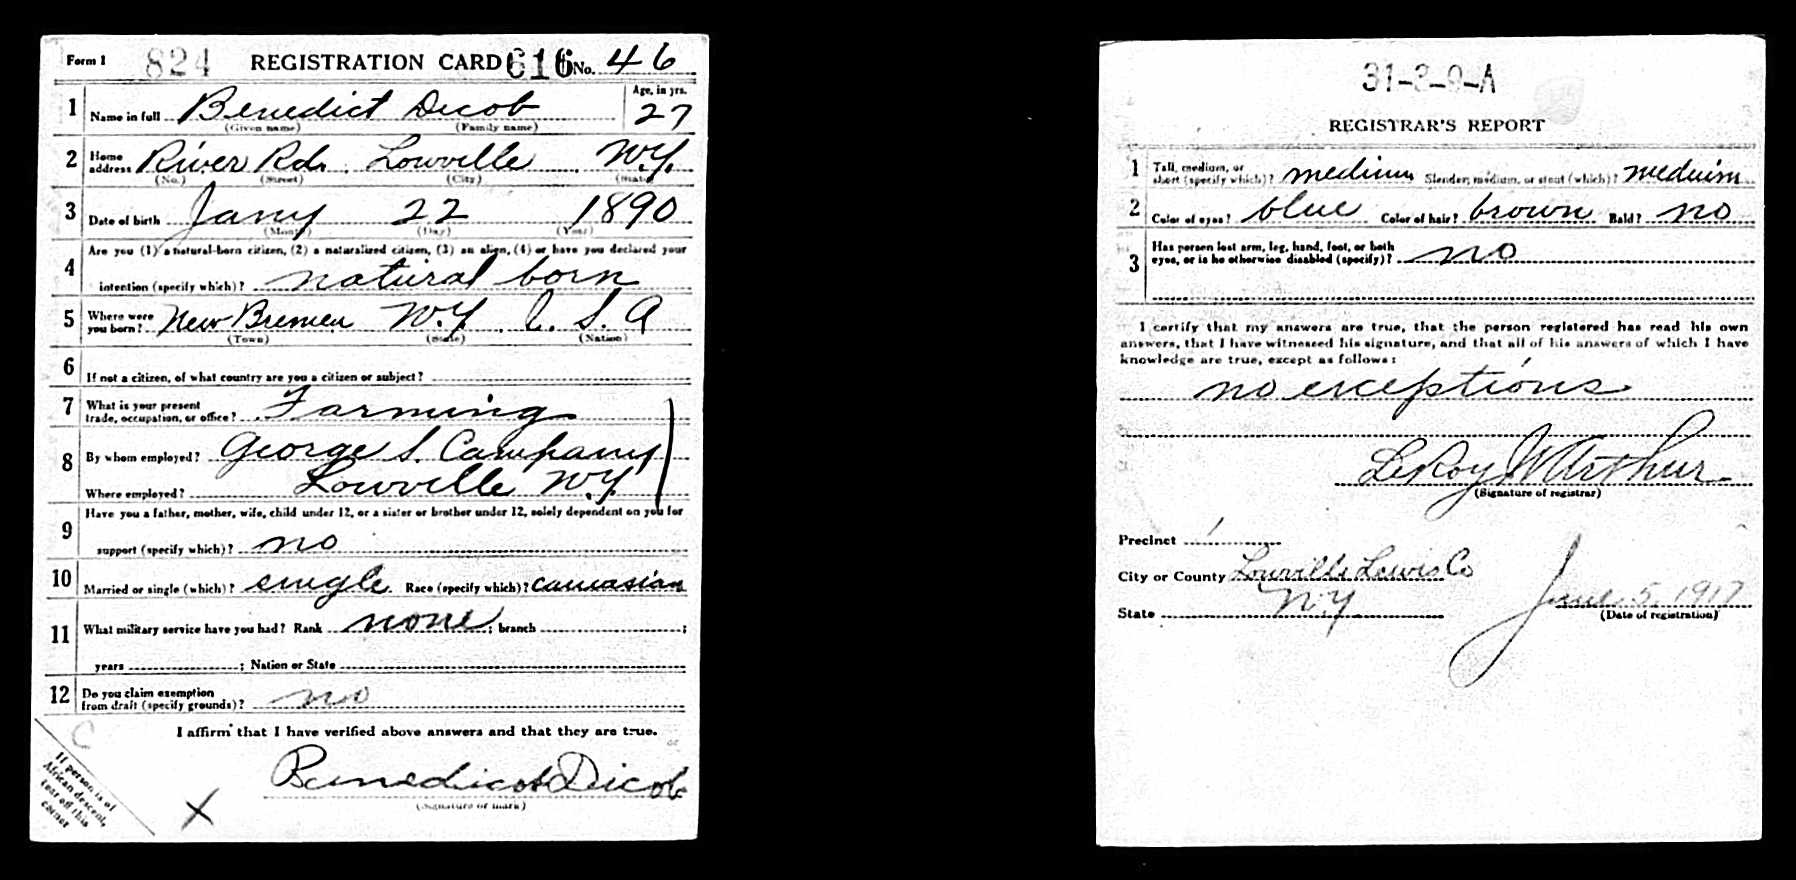 Form 1 824 REGISTRATION CARD 616 No. 46
1 Name in full Benedict Dicob Age, in yrs. 27
(Given name) (Family name)
2 Home address River Rd. Lowville N.Y.
(No.) (Street) (City) (State)
3 Date of birth Jany 22 1890
(Month) (Day) (Year)
4 Are you (1) a natural-born citizen, (2) a naturalized citizen, (3) an alien, (4) or have you declared your
intention (specify which)? natural born
5 Where were you born? New Bremen N.Y. U. S. A
(Town) (State) (Nation)
6 If not a citizen, of what country are you a citizen or subject?
7 What is your present trade, occupation, or office? Farming
8 By whom employed? George S. Company
Where employed? Lowville N.Y.
9 Have you a father, mother, wife, child under 12, or a sister or brother under 12, solely dependent on you for
support (specify which)? no
10 Married or single (which)? single Race (specify which)? caucasian
11 What military service have you had? Rank none ; branch ;
years ; Nation or State
12 Do you claim exemption from draft (specify grounds)? no
I affirm that I have verified above answers and that they are true.
C
Benedict Dicob
(Signature or mark)
X
If person is of
African descent,
tear off this
corner
31-3-9-A
REGISTRAR'S REPORT
1 Tall, medium, or short (specify which)? medium Slender, medium, or stout (which)? medium
2 Color of eyes? blue Color of hair? brown Bald? no
3 Has person lost arm, leg, hand, foot, or both
eyes, or is he otherwise disabled (specify)? no
I certify that my answers are true, that the person registered has read his own
answers, that I have witnessed his signature, and that all of his answers of which I have
knowledge are true, except as follows:
no exceptions
LeRoy W Arthur
(Signature of registrar)
Precinct 1
City or County Lowville Lewis Co
State N.Y. June 5, 1917
(Date of registration)